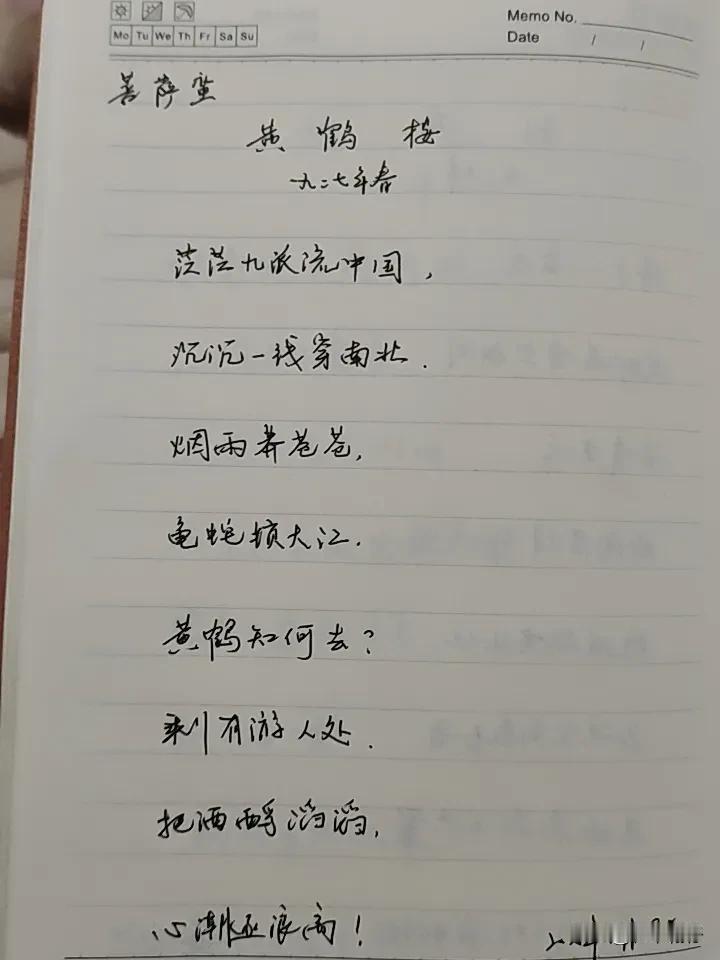 Memo No.
Mo Tu We Th Fr Sa Su
Date / /
菩萨蛮
黄鹤楼
一九二七年春
茫茫九派流中国，
沉沉一线穿南北.
烟雨莽苍苍，
龟蛇锁大江.
黄鹤知何去?
剩有游人处.
把酒酹滔滔，
心潮逐浪高!